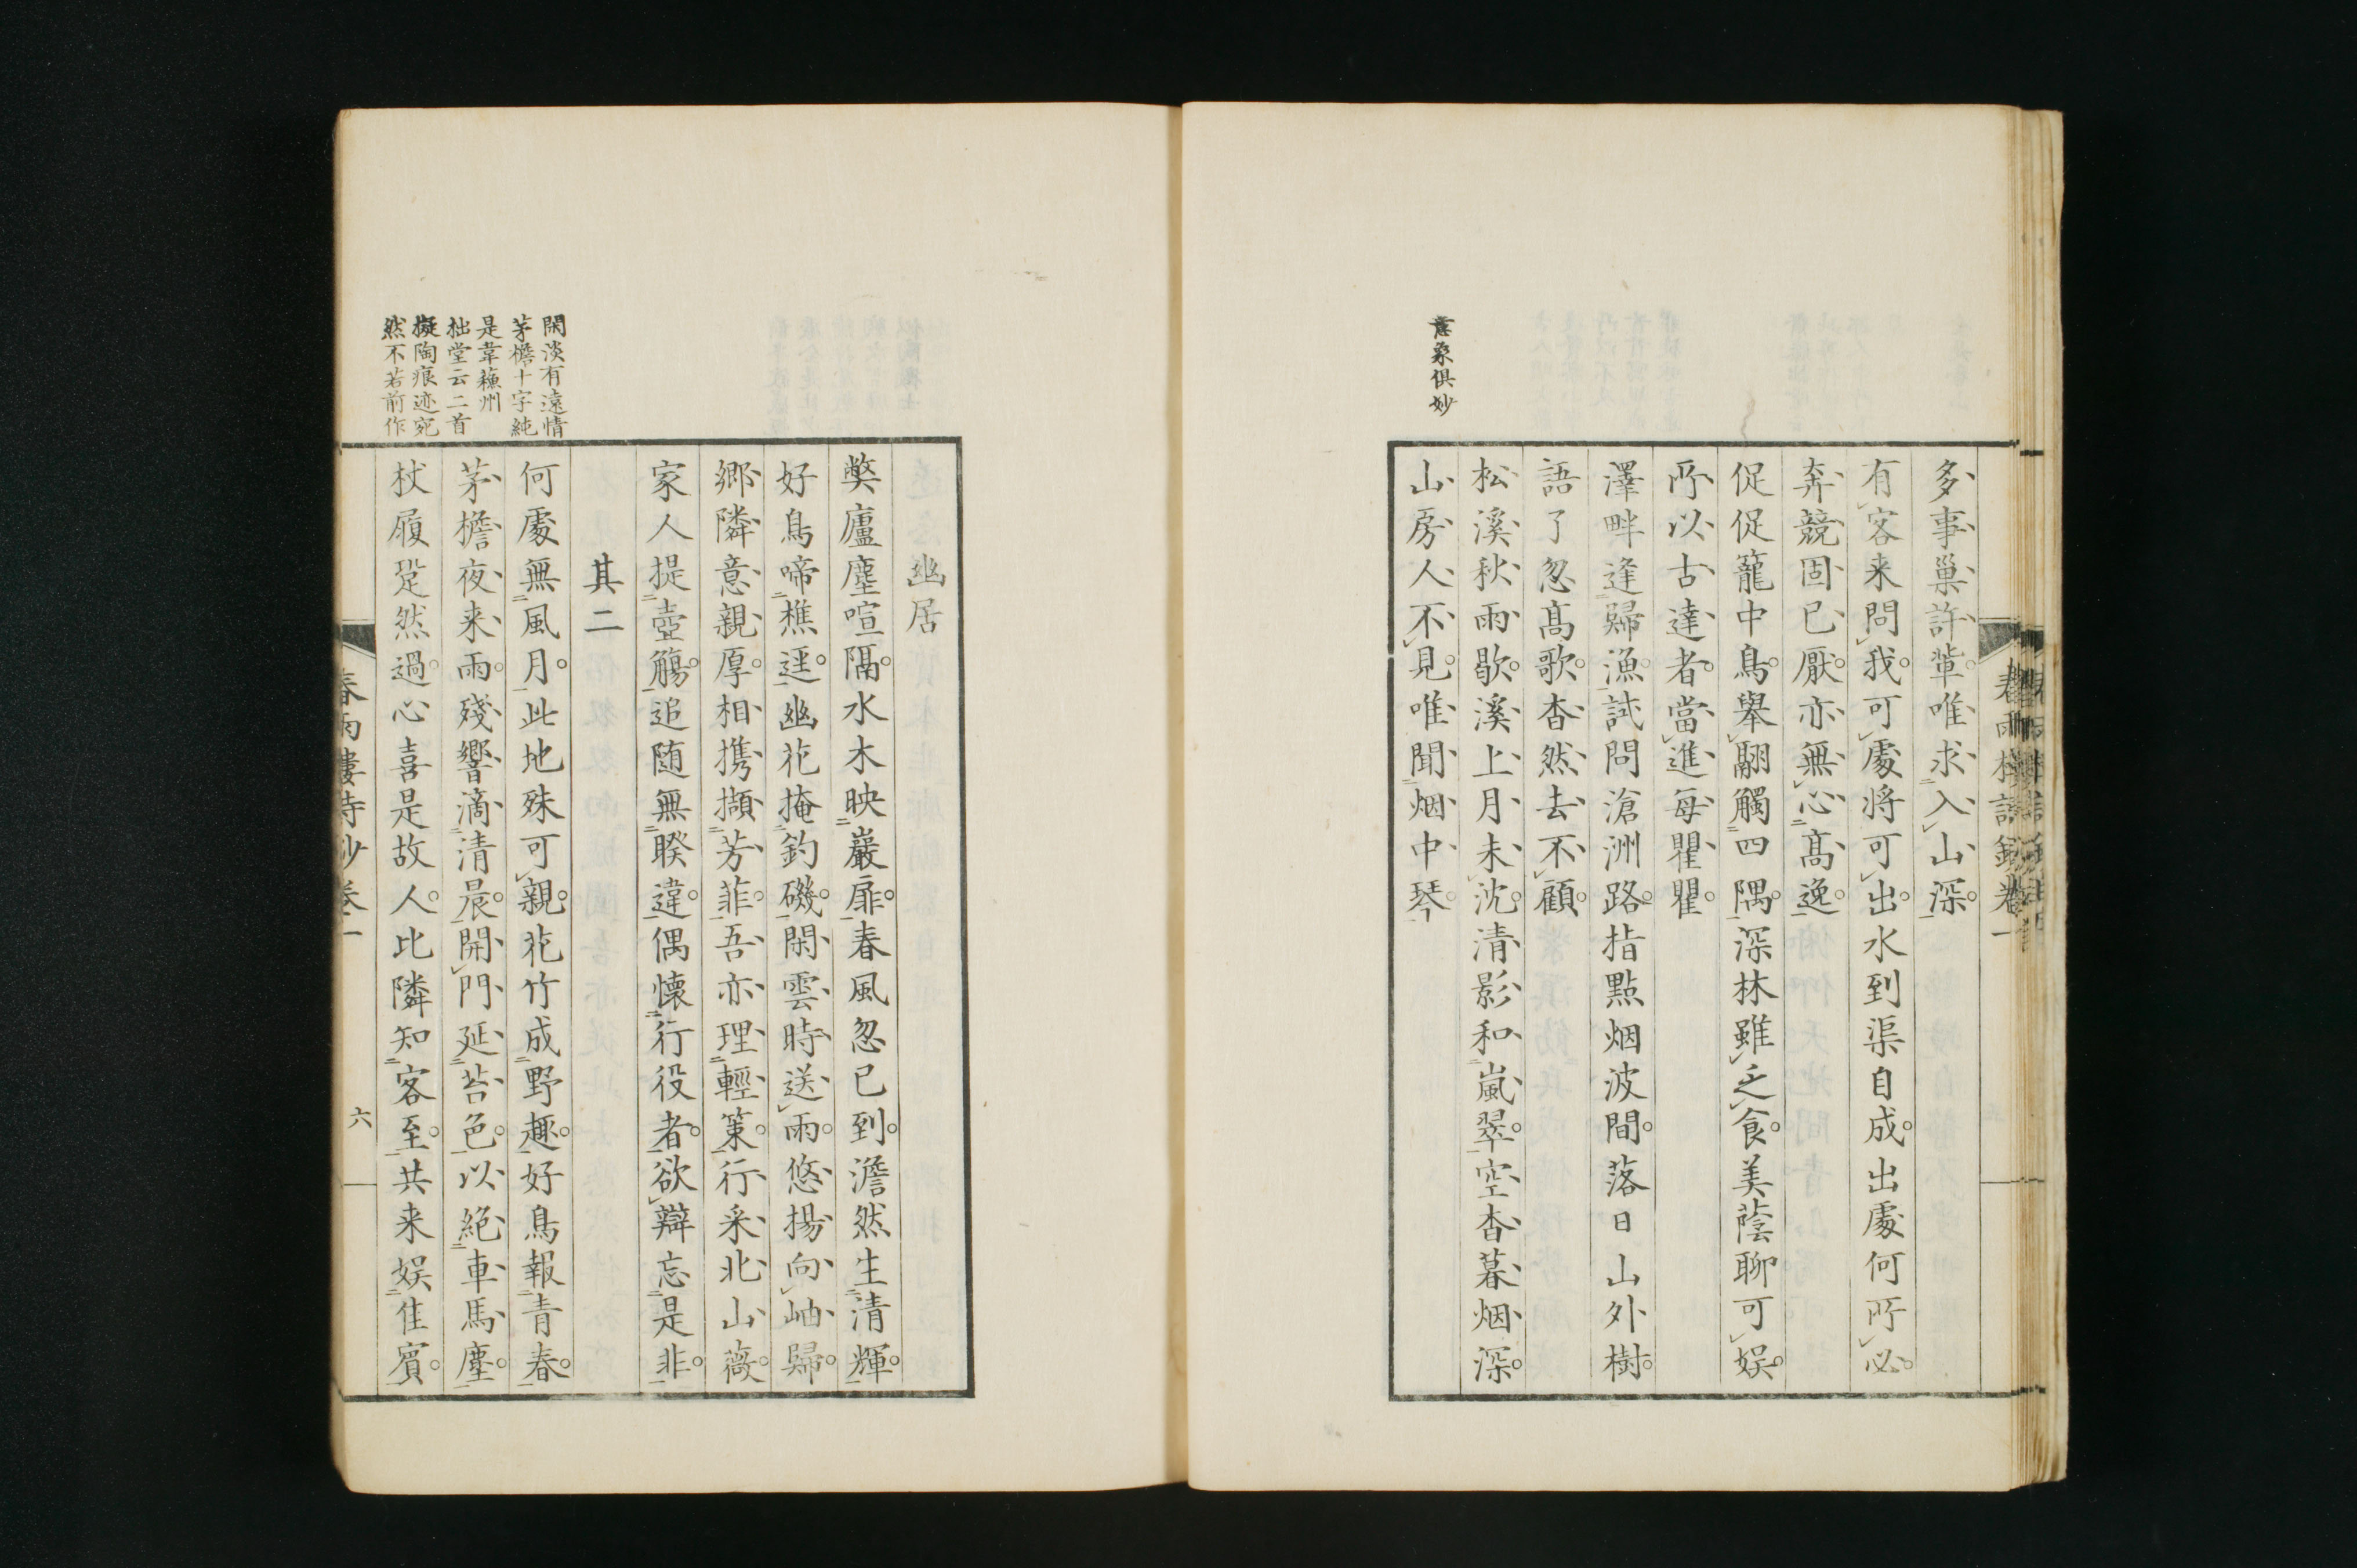 多事巢許輩唯求入山深
有客来問我可處将可出水到渠自成出處何所必
奔競固已厭亦無心髙逸
促促籠中鳥舉翮觸四隅深林雖乏食美蔭聊可娯
所以古達者當進每瞿瞿
澤畔逢歸漁試問滄洲路指點烟波間落日山外樹
語了忽髙歌杳然去不顧
意象俱妙
松溪秋雨歇溪上月未沈清影和嵐翠空杳暮烟深
山房人不見唯聞烟中琴
幽居
獘廬塵喧隔水木映巖扉春風忽已到澹然生清輝
好鳥啼樵逕幽花掩釣磯閑雲時送雨悠揚向岫歸
鄉隣意親厚相携擷芳菲吾亦理輕策行采北山薇
家人提壺觴追随無睽違偶懐行役者欲辯忘是非
其二
閑淡有遠情
茅檐十字純
是韋蘇州
拙堂云二首
擬陶痕迹宛
然不若前作
何處無風月此地殊可親花竹成野趣好鳥報青春
茅檐夜来雨殘響滴清晨開門延苔色以絕車馬塵
杖履跫然過心喜是故人比隣知客至共来娯佳賓
春雨樓詩鈔卷一
六